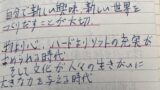 自分で新しい興味、新しい世界を
つくりだすことが大切
物より心、ハードよりソフトの充実が
求められる時代
そして文化が人々の生きがいに
大きな力を与える時代